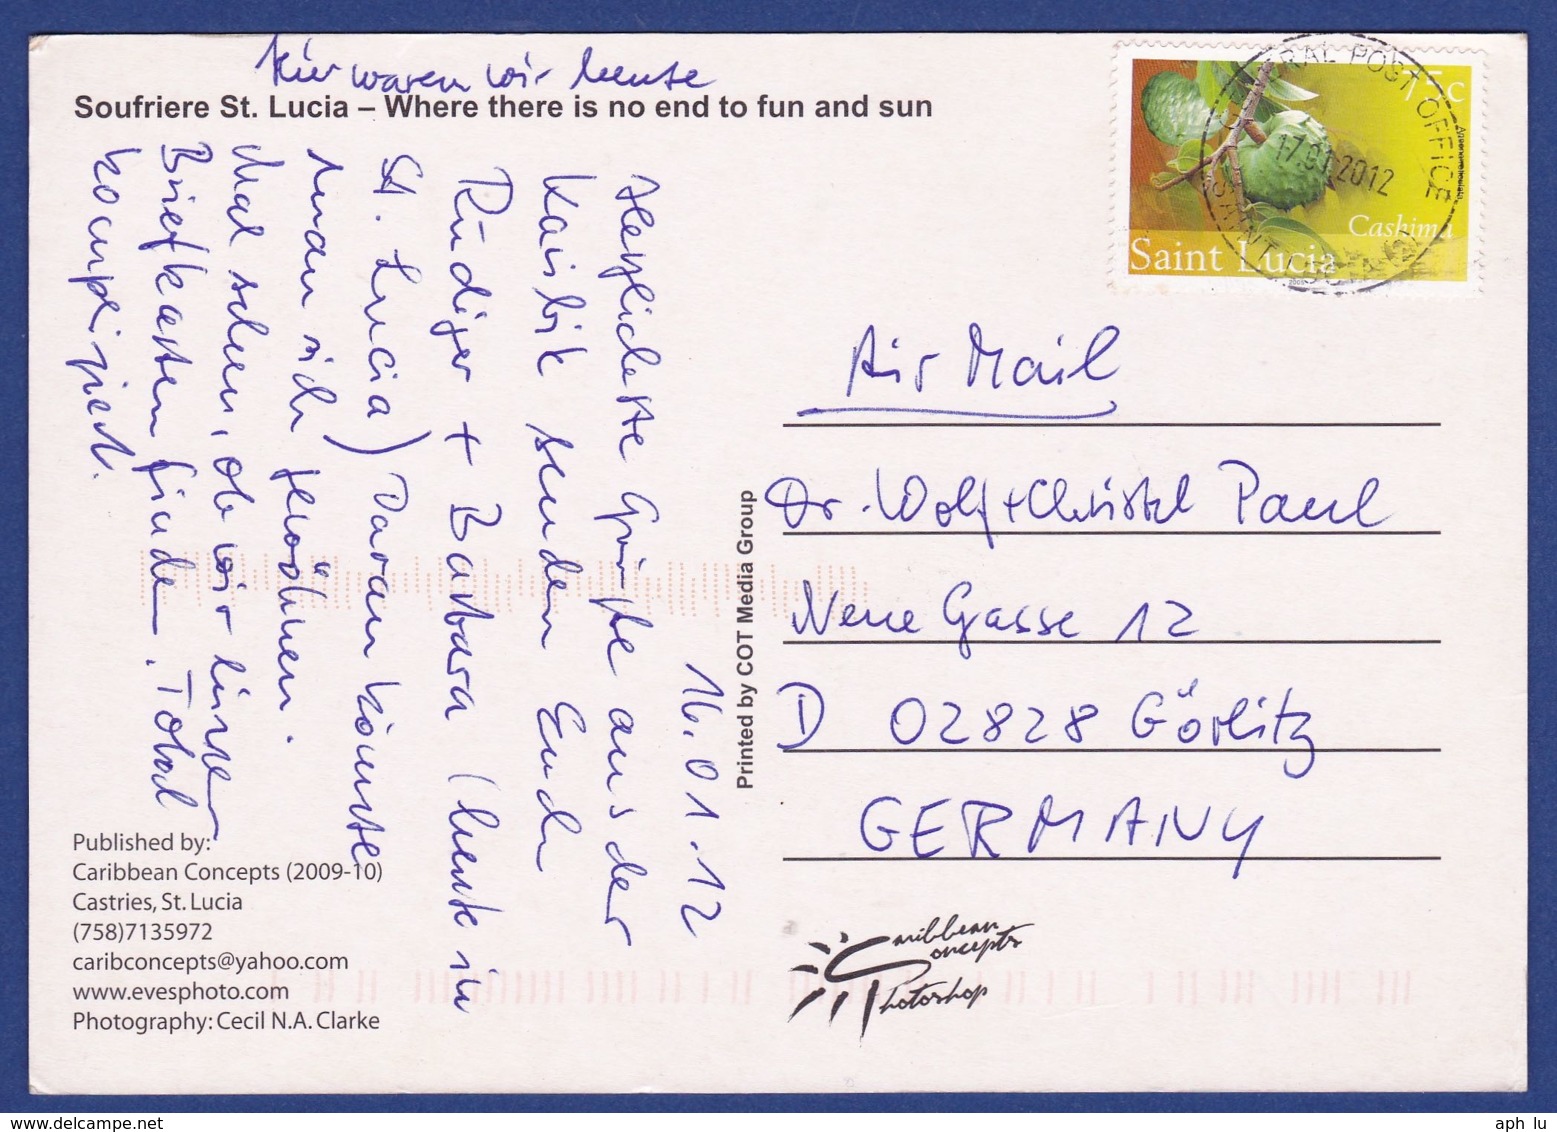 Hier waren wir heute
Soufriere St. Lucia – Where there is no end to fun and sun
16.01.12
Herzlichste Grüße aus der
Karibik senden Euch
Rüdiger + Barbara (heute in
St. Lucia) Daran könnte
man sich gewöhnen.
Mal sehen, ob wir einen
Briefkasten finden. Total
kompliziert.
Published by:
Caribbean Concepts (2009-10)
Castries, St. Lucia
(758)7135972
caribconcepts@yahoo.com
www.evesphoto.com
Photography: Cecil N.A. Clarke
Printed by COT Media Group
75c
Cashima
Saint Lucia
POST OFFICE
17.01.2012
SAINT LUCIA
Air Mail
Dr. Wolf + Christel Paul
Neue Gasse 12
D 02828 Görlitz
GERMANY
Caribbean
Concepts
Photoshop
aph lu